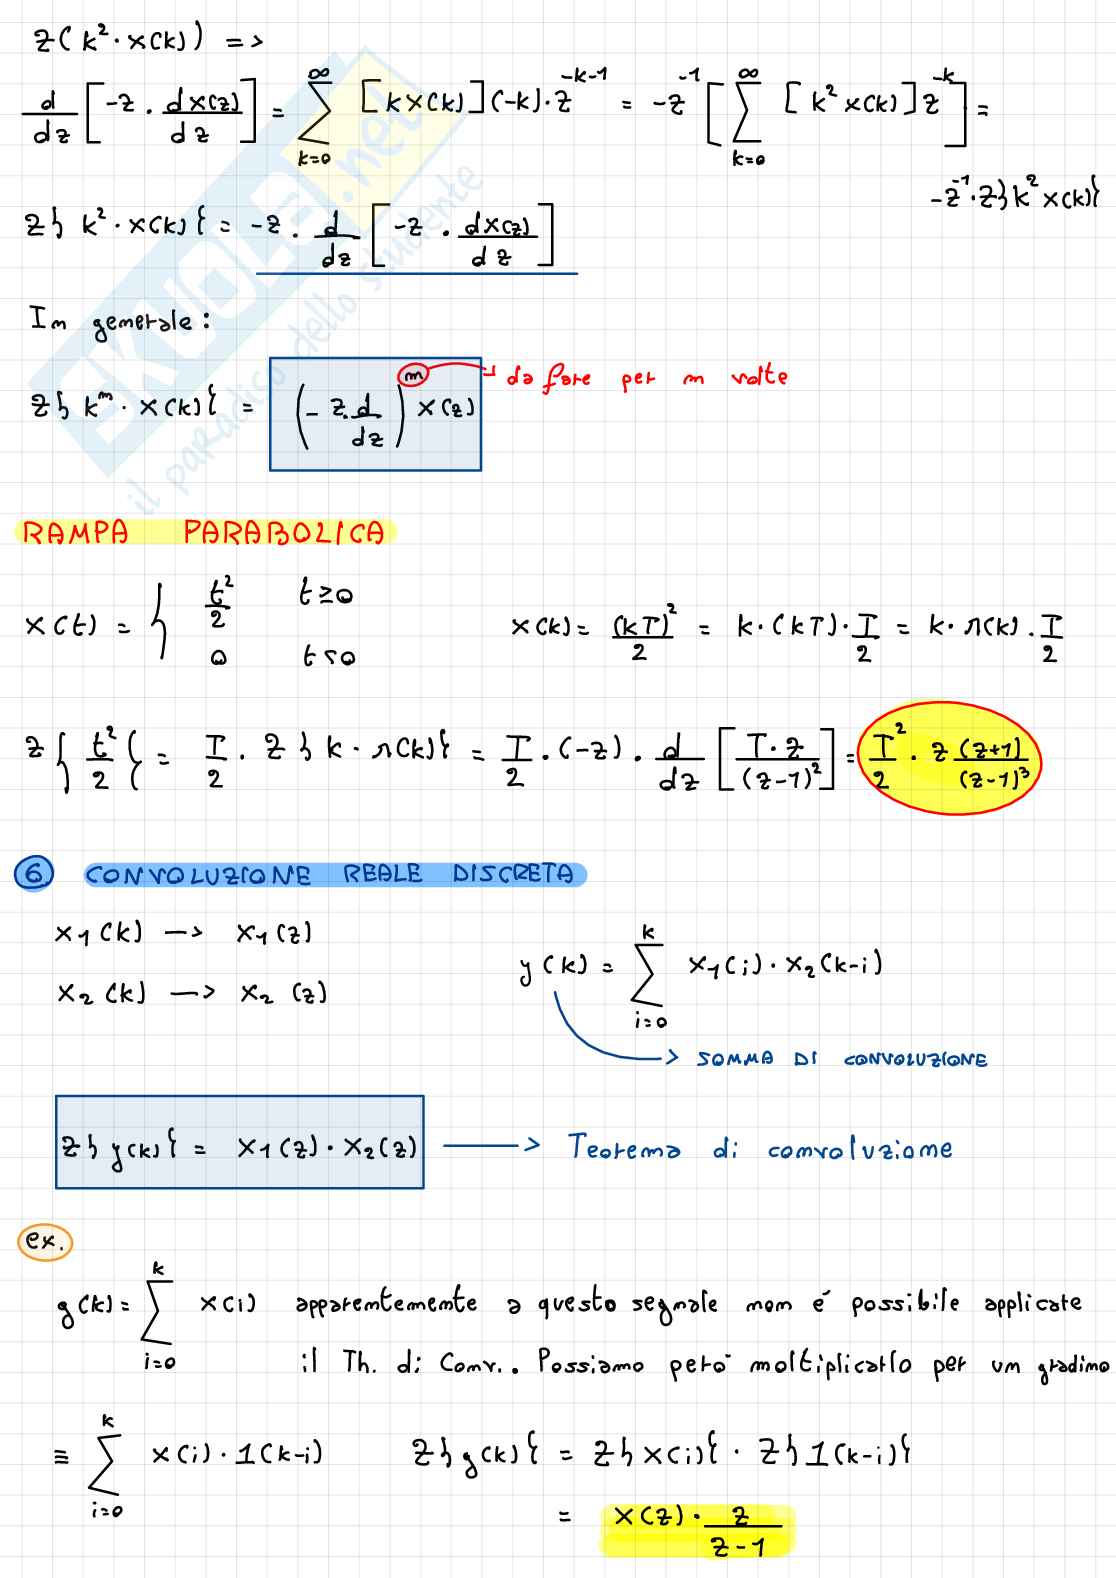 Z(k²·x(k)) =>
d/dz [-z · dX(z)/dz] = ∑_{k=0}^{∞} [k x(k)](-k)·z^{-k-1} = -z^{-1} [∑_{k=0}^{∞} [k² x(k)] z^{-k}] =
-z^{-1}·Z{k² x(k)}
Z{k²·x(k)} = -z · d/dz [-z · dX(z)/dz]
In generale:
Z{k^n·x(k)} = (-z·d/dz)^n X(z) → da fare per n volte
RAMPA PARABOLICA
x(t) = { t²/2 t≥0
0 t<0
x(k) = (kT)²/2 = k·(kT)·T/2 = k·r(k)·T/2
Z{t²/2} = T/2 · Z{k·r(k)} = T/2 ·(-z)· d/dz [T·z/(z-1)²] = T²/2 · z (z+1)/(z-1)³
6 CONVOLUZIONE REALE DISCRETA
x₁(k) -> X₁(z)
x₂(k) -> X₂(z)
y(k) = ∑_{i=0}^{k} x₁(i)·x₂(k-i)
-> SOMMA DI CONVOLUZIONE
Z{y(k)} = X₁(z)·X₂(z) -> Teorema di convoluzione
ex.
g(k) = ∑_{i=0}^{k} x(i) apparentemente a questo segnale non é possibile applicare
il Th. di Conv.. Possiamo però moltiplicarlo per un gradino
≡ ∑_{i=0}^{k} x(i)·1(k-i) Z{g(k)} = Z{x(i)}·Z{1(k-i)}
= X(z)· z/z-1
SKUOLA.net
il paradiso dello studente